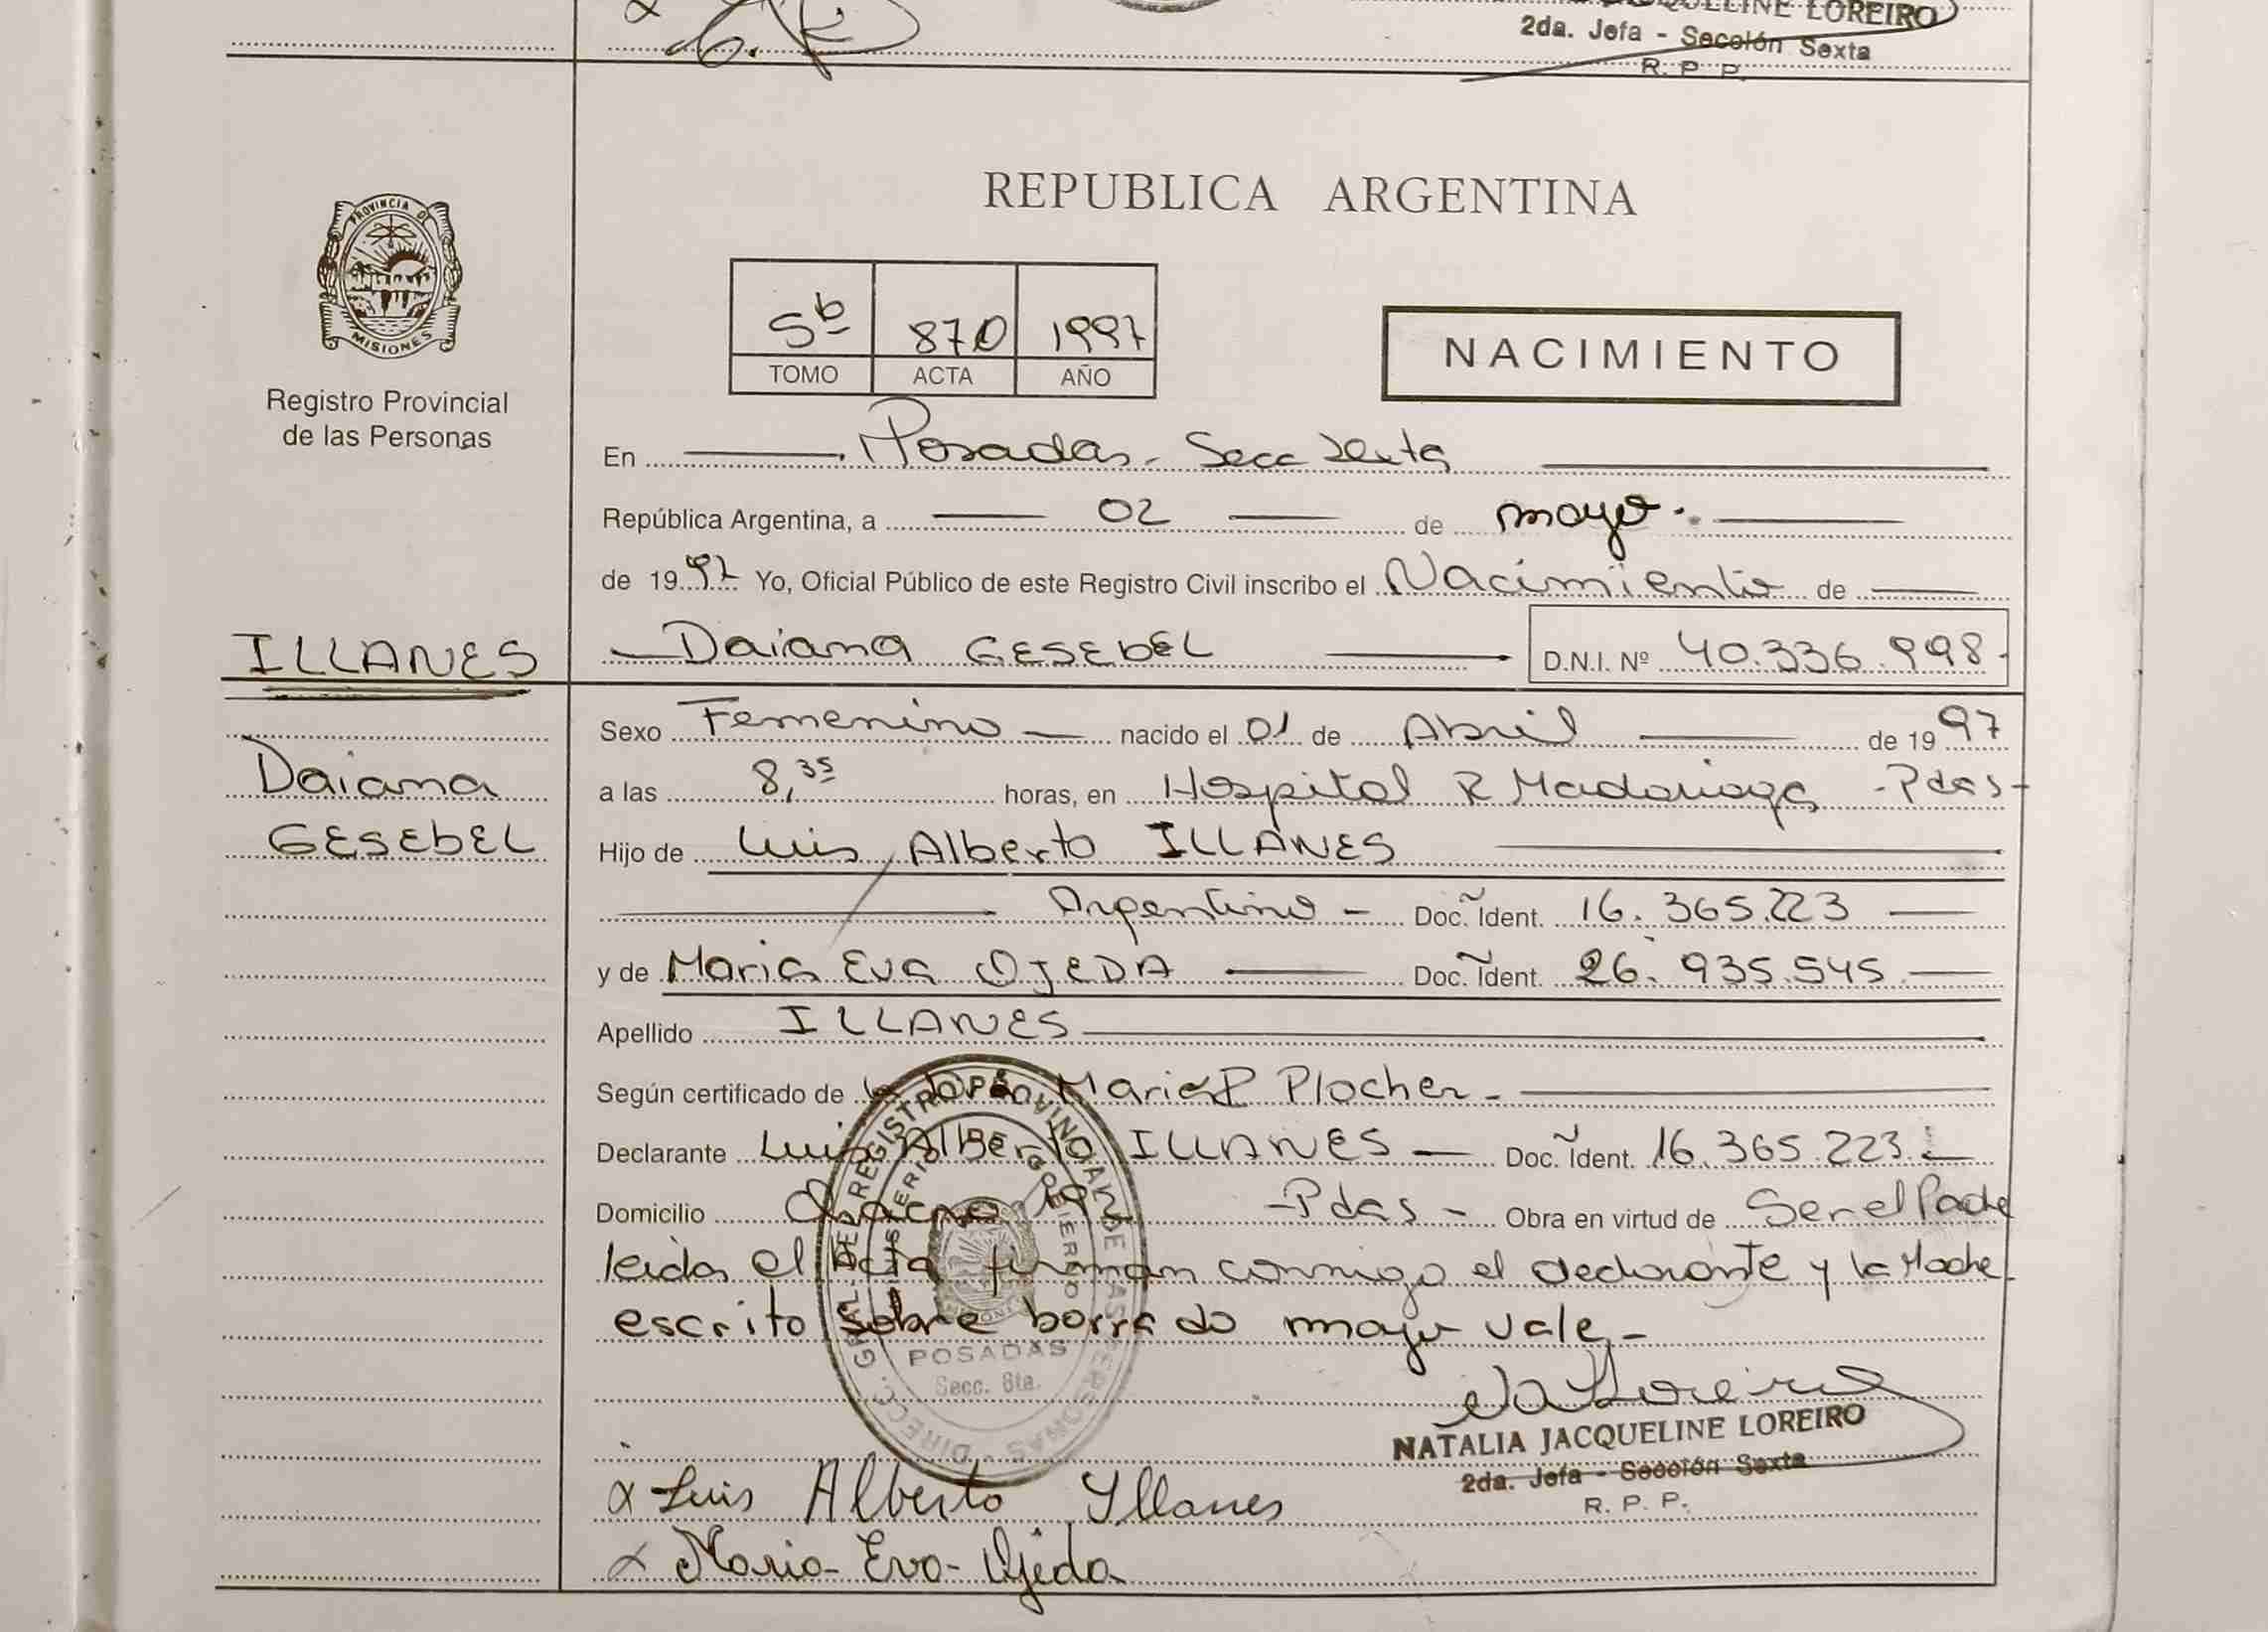 JACQUELINE LOREIRO
2da. Jefa - Sección Sexta
R. P. P.
PROVINCIA DE
MISIONES
Registro Provincial
de las Personas
REPUBLICA ARGENTINA
5b 870 1997
TOMO ACTA AÑO
NACIMIENTO
En Posadas - Secc Sexta
República Argentina, a 02 de mayo.
de 1997 Yo, Oficial Público de este Registro Civil inscribo el Nacimiento de
ILLANES
Daiana GESEbEL D.N.I. Nº 40.336.998
Daiana
GESEbEL
Sexo Femenino nacido el 01 de Abril de 1997
a las 8,35 horas, en Hospital R Madariaga - Pdas -
Hijo de Luis Alberto ILLANES
Argentino - Doc. Ident. 16.365.223
y de Maria Eva OJEDA Doc. Ident. 26.935.545
Apellido ILLANES
Según certificado de la Maria P Plocher -
Declarante Luis Alberto ILLANES Doc. Ident. 16.365.223
Domicilio Chacra 192 - Pdas - Obra en virtud de Ser el Padre
leida el Acta firman conmigo el declarante y la Madre
escrito sobre borrado mayo vale -
DIRECC. GRAL. DEL REGISTRO PROVINCIAL DE LAS PERSONAS
POSADAS
Secc. 6ta.
NATALIA JACQUELINE LOREIRO
2da. Jefa - Sección Sexta
R. P. P.
x Luis Alberto Yllanes
x Maria - Eva - Ojeda